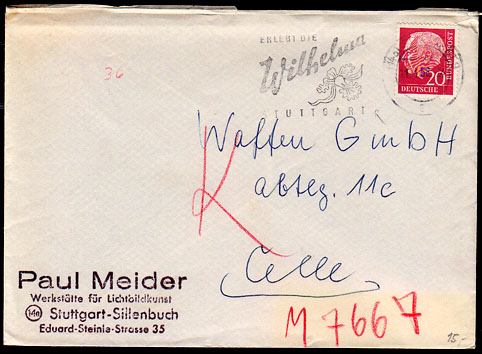 ERLEBT DIE
Wilhelma
STUTTGART
20
DEUTSCHE
BUNDESPOST
36
Waffen GmbH
abteg. 11c
Celle
K
Paul Meider
Werkstätte für Lichtbildkunst
14a Stuttgart-Sillenbuch
Eduard-Steinle-Strasse 35
M 7667
15.-